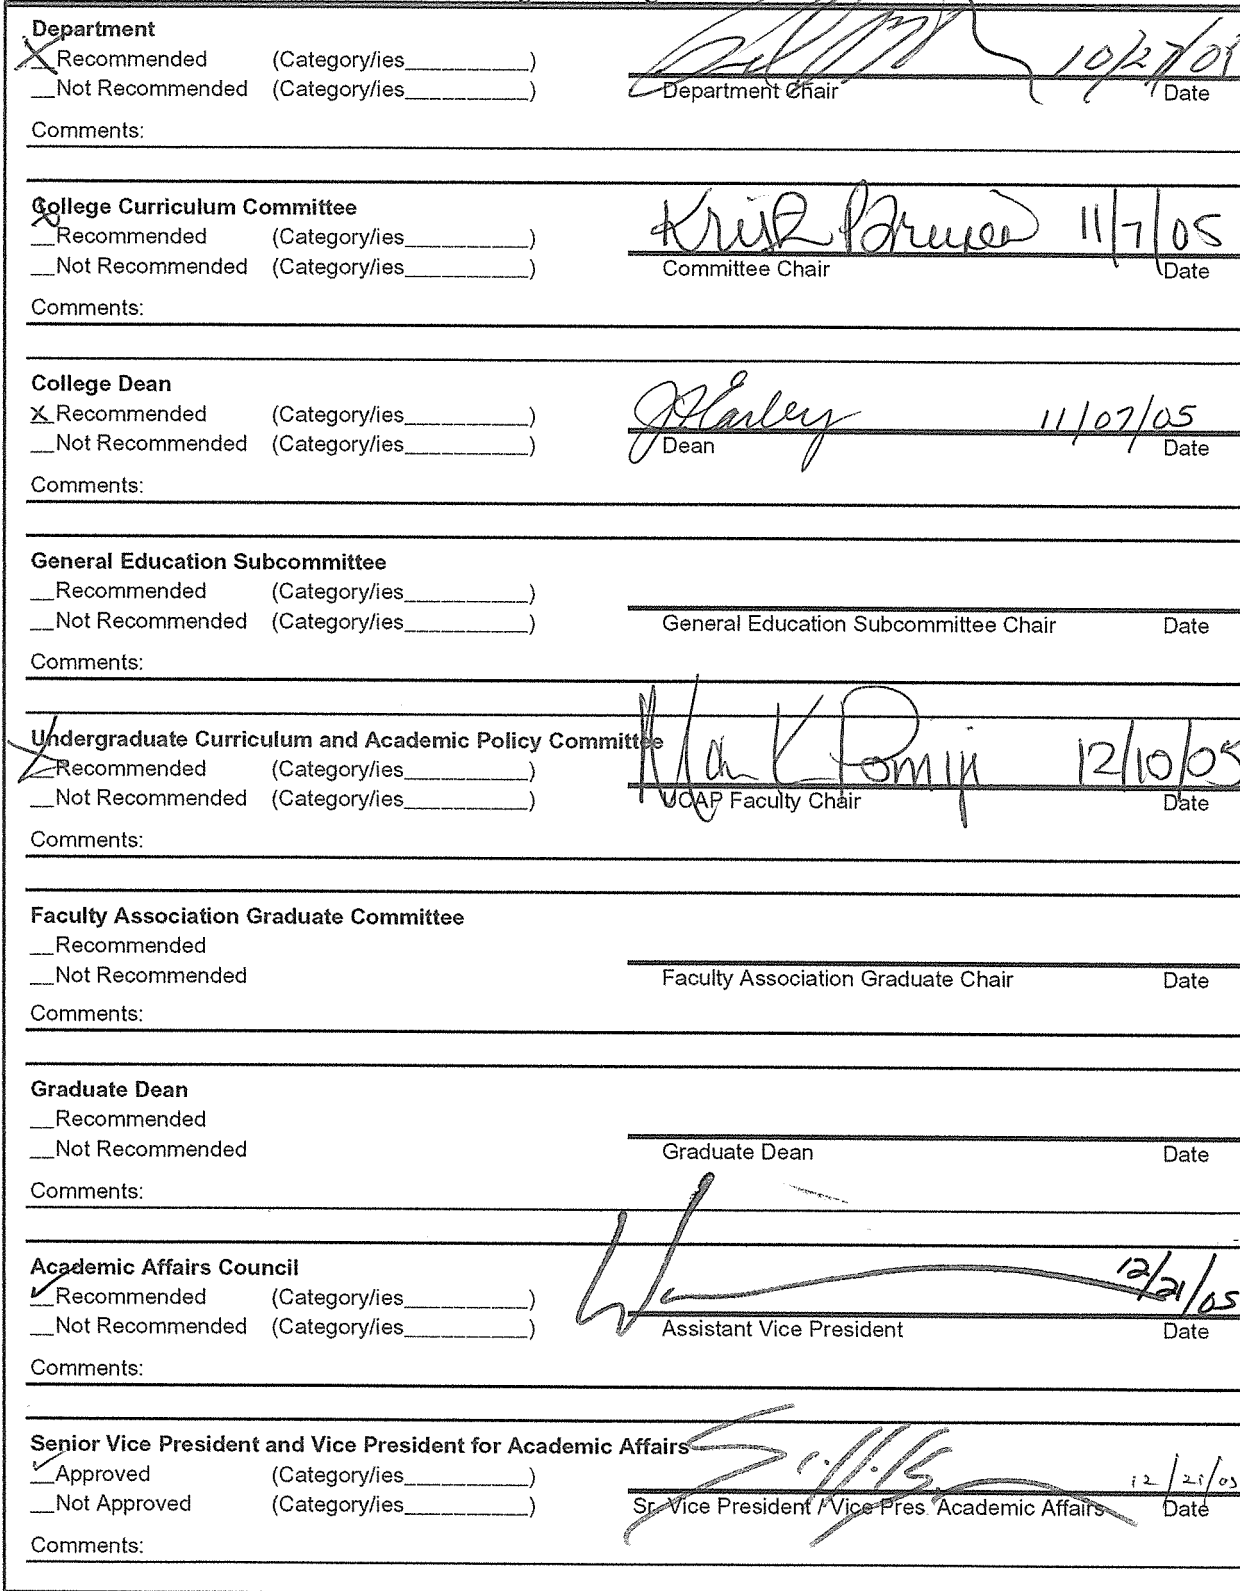 Department
Recommended (Category/ies__________)
__Not Recommended (Category/ies__________)
Department Chair Date
Comments:
College Curriculum Committee
__Recommended (Category/ies__________) 11/7/05
__Not Recommended (Category/ies__________)
Committee Chair Date
Comments:
College Dean
x Recommended (Category/ies__________) 11/07/05
__Not Recommended (Category/ies__________)
Dean Date
Comments:
General Education Subcommittee
__Recommended (Category/ies__________)
__Not Recommended (Category/ies__________)
General Education Subcommittee Chair Date
Comments:
Undergraduate Curriculum and Academic Policy Committee
__Recommended (Category/ies__________) 12/10/05
__Not Recommended (Category/ies__________)
UCAP Faculty Chair Date
Comments:
Faculty Association Graduate Committee
__Recommended
__Not Recommended
Faculty Association Graduate Chair Date
Comments:
Graduate Dean
__Recommended
__Not Recommended
Graduate Dean Date
Comments:
Academic Affairs Council
__Recommended (Category/ies__________) 12/21/05
__Not Recommended (Category/ies__________)
Assistant Vice President Date
Comments:
Senior Vice President and Vice President for Academic Affairs
__Approved (Category/ies__________) 12/21/05
__Not Approved (Category/ies__________)
Sr. Vice President / Vice Pres. Academic Affairs Date
Comments: